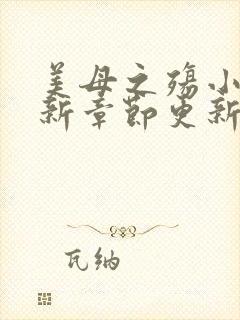 美母之殇小
新章节更新
瓦纳